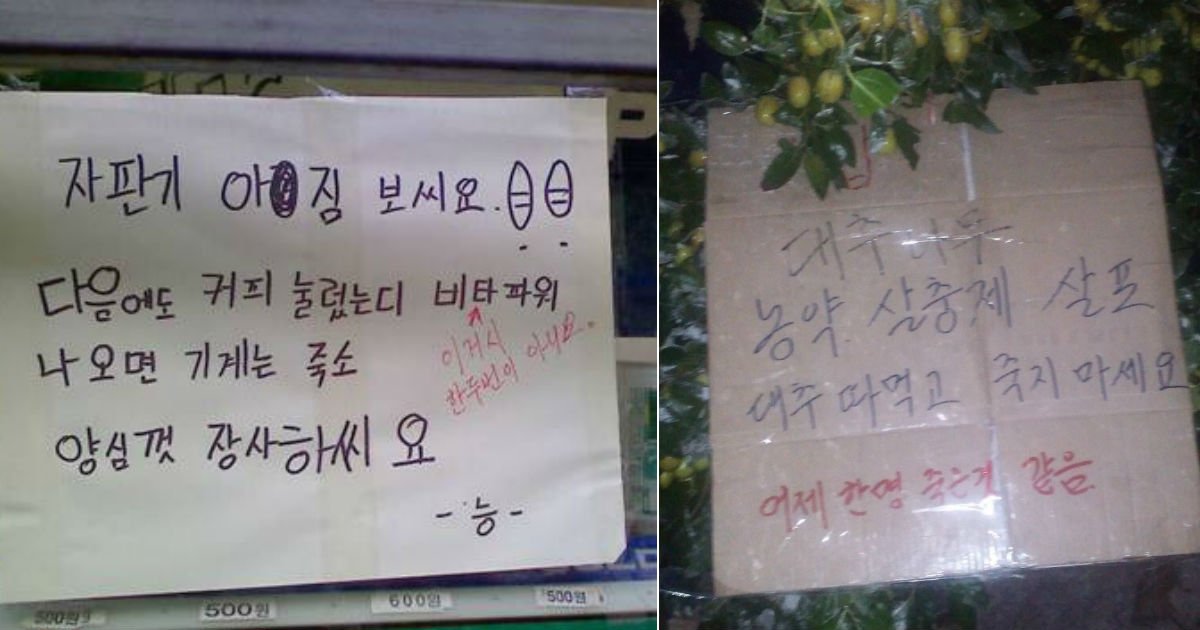 자판기 아짐 보씨요.
다음에도 커피 눌렀는디 비타파워
나오면 기계는 죽소
이거시
한두번이 아니요.
양심껏 장사하씨요
- 능 -
500원
500원
600원
500원
대추나무
농약. 살충제 살포
대추 따먹고 죽지 마세요
어제 한명 죽은거 같음.